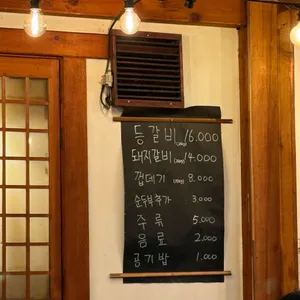 등갈비 16.000
돼지갈비 14.000
껍데기 8.000
순두부추가 3.000
주류 5.000
음료 2.000
공기밥 1.000